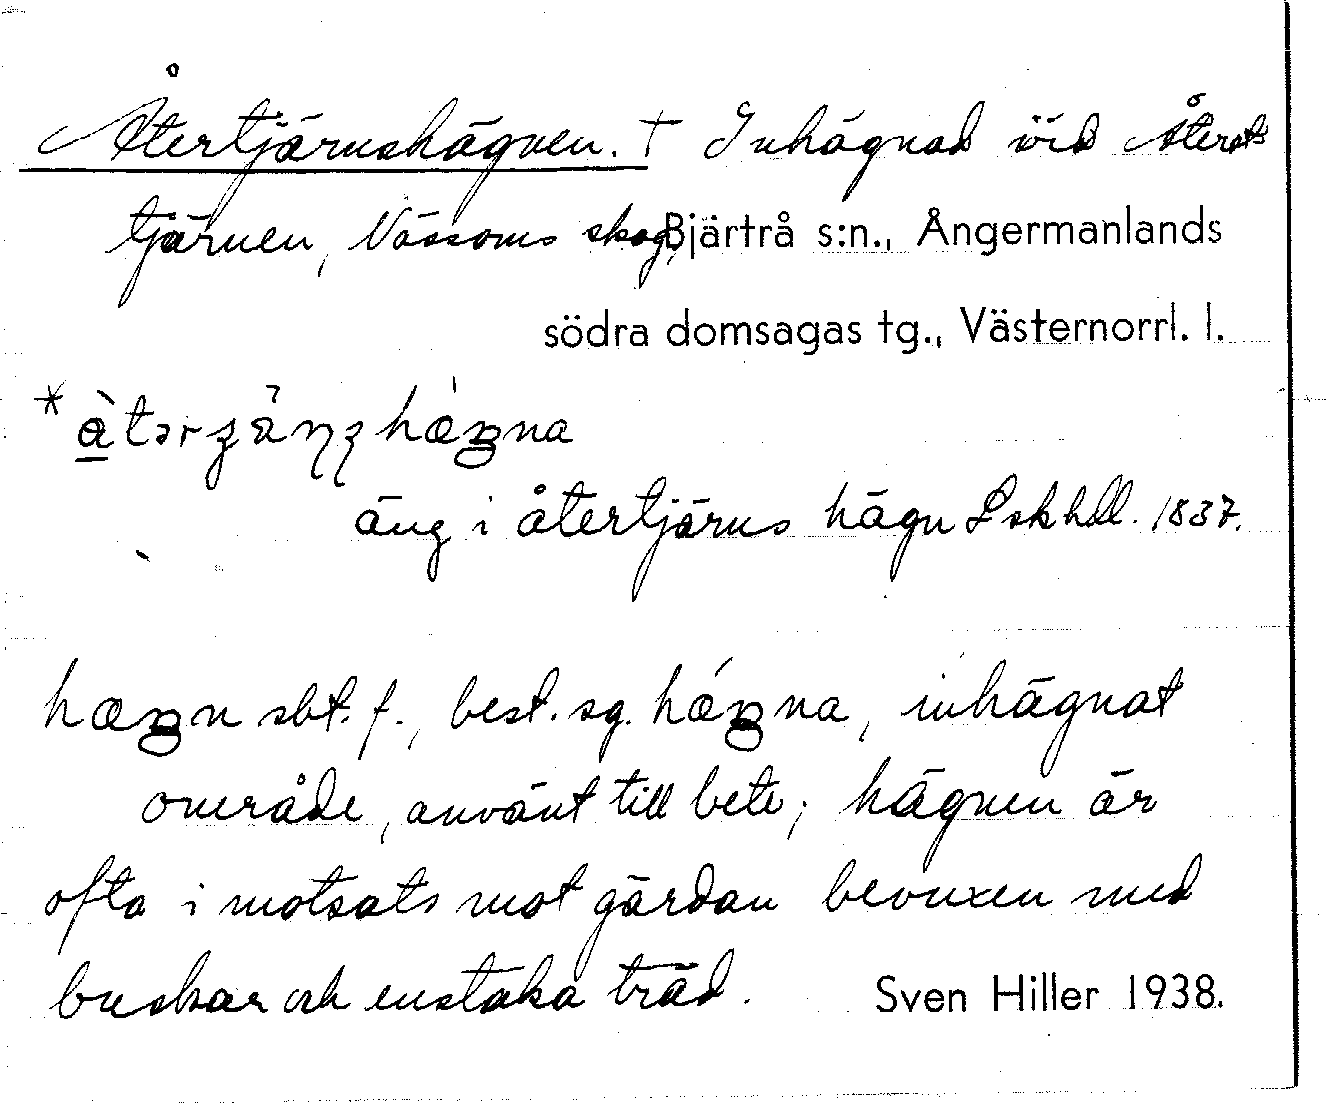 Återtjärnshägnen. † Inhägnad vid Åters-
tjärnen, Nässoms skog, Bjärtrå s:n., Ångermanlands
södra domsagas tg., Västernorrl. l.
* åtər hægna
äng i återtjärns hägn L skhdl. 1837.
hægn sbt. f., best. sg. hægna, inhägnat
område, använt till bete; hägnen är
ofta i motsats mot gärdan bevuxen med
buskar och enstaka träd. Sven Hiller 1938.